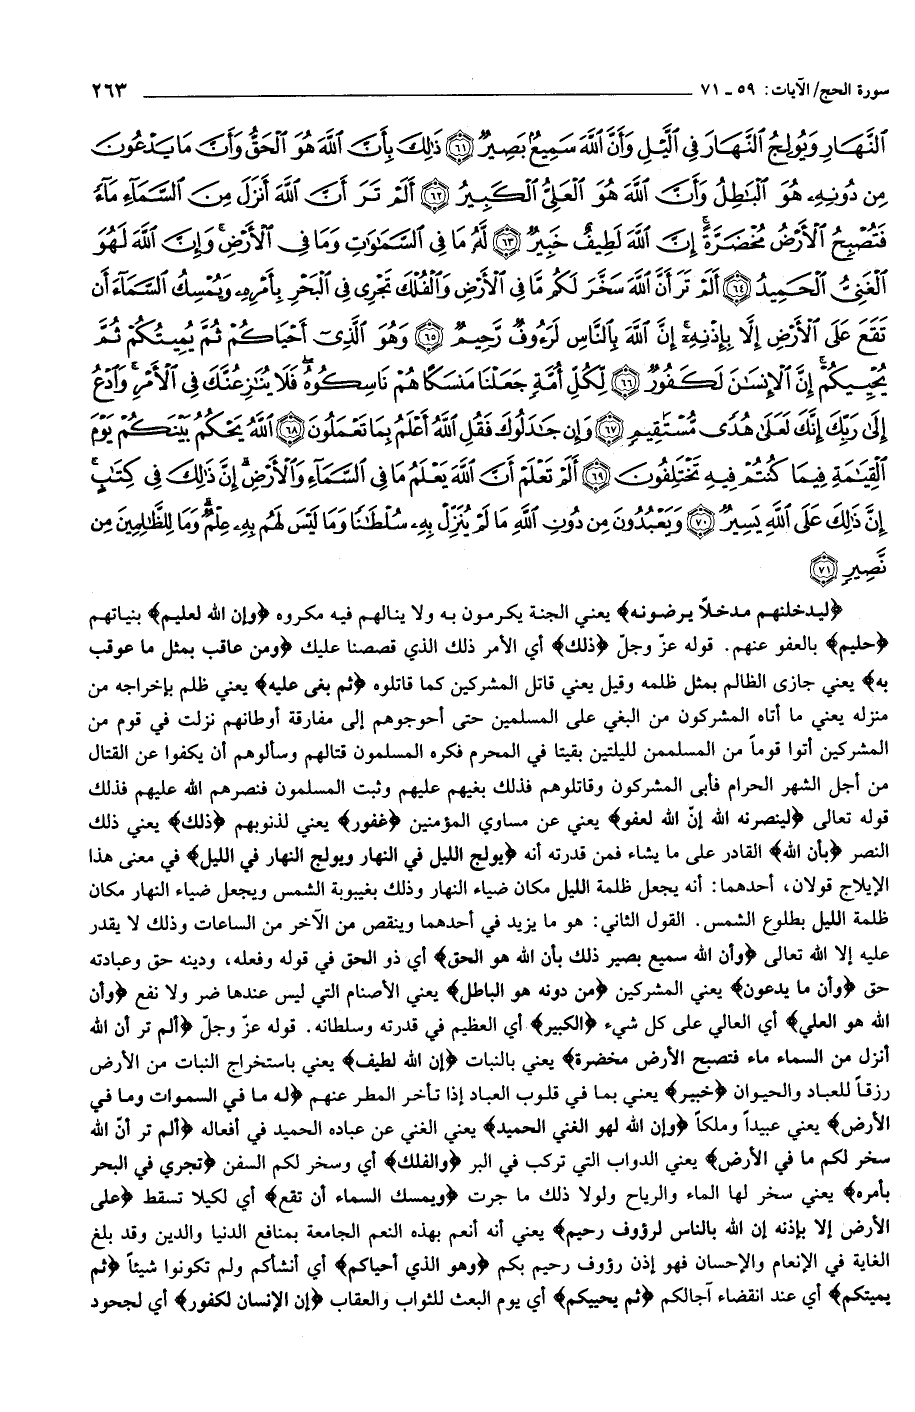 سورة الحج/ الآيات: ٥٩ ـ ٧١ ٢٦٣
ٱلنَّهَارِ وَيُولِجُ ٱلنَّهَارَ فِى ٱلَّيْلِ وَأَنَّ ٱللَّهَ سَمِيعٌۢ بَصِيرٌ ٦١ ذَٰلِكَ بِأَنَّ ٱللَّهَ هُوَ ٱلْحَقُّ وَأَنَّ مَا يَدْعُونَ
مِن دُونِهِۦ هُوَ ٱلْبَٰطِلُ وَأَنَّ ٱللَّهَ هُوَ ٱلْعَلِىُّ ٱلْكَبِيرُ ٦٢ أَلَمْ تَرَ أَنَّ ٱللَّهَ أَنزَلَ مِنَ ٱلسَّمَآءِ مَآءً
فَتُصْبِحُ ٱلْأَرْضُ مُخْضَرَّةً ۗ إِنَّ ٱللَّهَ لَطِيفٌ خَبِيرٌ ٦٣ لَّهُۥ مَا فِى ٱلسَّمَٰوَٰتِ وَمَا فِى ٱلْأَرْضِ ۗ وَإِنَّ ٱللَّهَ لَهُوَ
ٱلْغَنِىُّ ٱلْحَمِيدُ ٦٤ أَلَمْ تَرَ أَنَّ ٱللَّهَ سَخَّرَ لَكُم مَّا فِى ٱلْأَرْضِ وَٱلْفُلْكَ تَجْرِى فِى ٱلْبَحْرِ بِأَمْرِهِۦ وَيُمْسِكُ ٱلسَّمَآءَ أَن
تَقَعَ عَلَى ٱلْأَرْضِ إِلَّا بِإِذْنِهِۦٓ ۗ إِنَّ ٱللَّهَ بِٱلنَّاسِ لَرَءُوفٌ رَّحِيمٌ ٦٥ وَهُوَ ٱلَّذِىٓ أَحْيَاكُمْ ثُمَّ يُمِيتُكُمْ ثُمَّ
يُحْيِيكُمْ ۗ إِنَّ ٱلْإِنسَٰنَ لَكَفُورٌ ٦٦ لِّكُلِّ أُمَّةٍ جَعَلْنَا مَنسَكًا هُمْ نَاسِكُوهُ ۖ فَلَا يُنَٰزِعُنَّكَ فِى ٱلْأَمْرِ ۚ وَٱدْعُ
إِلَىٰ رَبِّكَ ۖ إِنَّكَ لَعَلَىٰ هُدًى مُّسْتَقِيمٍ ٦٧ وَإِن جَٰدَلُوكَ فَقُلِ ٱللَّهُ أَعْلَمُ بِمَا تَعْمَلُونَ ٦٨ ٱللَّهُ يَحْكُمُ بَيْنَكُمْ يَوْمَ
ٱلْقِيَٰمَةِ فِيمَا كُنتُمْ فِيهِ تَخْتَلِفُونَ ٦٩ أَلَمْ تَعْلَمْ أَنَّ ٱللَّهَ يَعْلَمُ مَا فِى ٱلسَّمَآءِ وَٱلْأَرْضِ ۗ إِنَّ ذَٰلِكَ فِى كِتَٰبٍ ۚ
إِنَّ ذَٰلِكَ عَلَى ٱللَّهِ يَسِيرٌ ٧٠ وَيَعْبُدُونَ مِن دُونِ ٱللَّهِ مَا لَمْ يُنَزِّلْ بِهِۦ سُلْطَٰنًا وَمَا لَيْسَ لَهُم بِهِۦ عِلْمٌ ۗ وَمَا لِلظَّٰلِمِينَ مِن
نَّصِيرٍ ٧١
﴿ليدخلنهم مدخلاً يرضونه﴾ يعني الجنة يكرمون به ولا ينالهم فيه مكروه ﴿وإن الله لعليم﴾ بنياتهم
﴿حليم﴾ بالعفو عنهم. قوله عزّ وجلّ ﴿ذلك﴾ أي الأمر ذلك الذي قصصنا عليك ﴿ومن عاقب بمثل ما عوقب
به﴾ يعني جازى الظالم بمثل ظلمه وقيل يعني قاتل المشركين كما قاتلوه ﴿ثم بغى عليه﴾ يعني ظلم بإخراجه من
منزله يعني ما أتاه المشركون من البغي على المسلمين حتى أحوجوهم إلى مفارقة أوطانهم نزلت في قوم من
المشركين أتوا قوماً من المسلممن لليلتين بقيتا في المحرم فكره المسلمون قتالهم وسألوهم أن يكفوا عن القتال
من أجل الشهر الحرام فأبى المشركون وقاتلوهم فذلك بغيهم عليهم وثبت المسلمون فنصرهم الله عليهم فذلك
قوله تعالى ﴿لينصرنه الله إنّ الله لعفو﴾ يعني عن مساوي المؤمنين ﴿غفور﴾ يعني لذنوبهم ﴿ذلك﴾ يعني ذلك
النصر ﴿بأن الله﴾ القادر على ما يشاء فمن قدرته أنه ﴿يولج الليل في النهار ويولج النهار في الليل﴾ في معنى هذا
الإيلاج قولان، أحدهما: أنه يجعل ظلمة الليل مكان ضياء النهار وذلك بغيبوبة الشمس ويجعل ضياء النهار مكان
ظلمة الليل بطلوع الشمس. القول الثاني: هو ما يزيد في أحدهما وينقص من الآخر من الساعات وذلك لا يقدر
عليه إلا الله تعالى ﴿وأن الله سميع بصير ذلك بأن الله هو الحق﴾ أي ذو الحق في قوله وفعله، ودينه حق وعبادته
حق ﴿وأن ما يدعون﴾ يعني المشركين ﴿من دونه هو الباطل﴾ يعني الأصنام التي ليس عندها ضر ولا نفع ﴿وأن
الله هو العلي﴾ أي العالي على كل شيء ﴿الكبير﴾ أي العظيم في قدرته وسلطانه. قوله عزّ وجلّ ﴿ألم تر أن الله
أنزل من السماء ماء فتصبح الأرض مخضرة﴾ يعني بالنبات ﴿إن الله لطيف﴾ يعني باستخراج النبات من الأرض
رزقاً للعباد والحيوان ﴿خبير﴾ يعني بما في قلوب العباد إذا تأخر المطر عنهم ﴿له ما في السموات وما في
الأرض﴾ يعني عبيداً وملكاً ﴿وإن الله لهو الغني الحميد﴾ يعني الغني عن عباده الحميد في أفعاله ﴿ألم تر أنّ الله
سخر لكم ما في الأرض﴾ يعني الدواب التي تركب في البر ﴿والفلك﴾ أي وسخر لكم السفن ﴿تجري في البحر
بأمره﴾ يعني سخر لها الماء والرياح ولولا ذلك ما جرت ﴿ويمسك السماء أن تقع﴾ أي لكيلا تسقط ﴿على
الأرض إلا بإذنه إن الله بالناس لرؤوف رحيم﴾ يعني أنه أنعم بهذه النعم الجامعة بمنافع الدنيا والدين وقد بلغ
الغاية في الإنعام والإحسان فهو إذن رؤوف رحيم بكم ﴿وهو الذي أحياكم﴾ أي أنشأكم ولم تكونوا شيئاً ﴿ثم
يميتكم﴾ أي عند انقضاء آجالكم ﴿ثم يحييكم﴾ أي يوم البعث للثواب والعقاب ﴿إن الإنسان لكفور﴾ أي لجحود